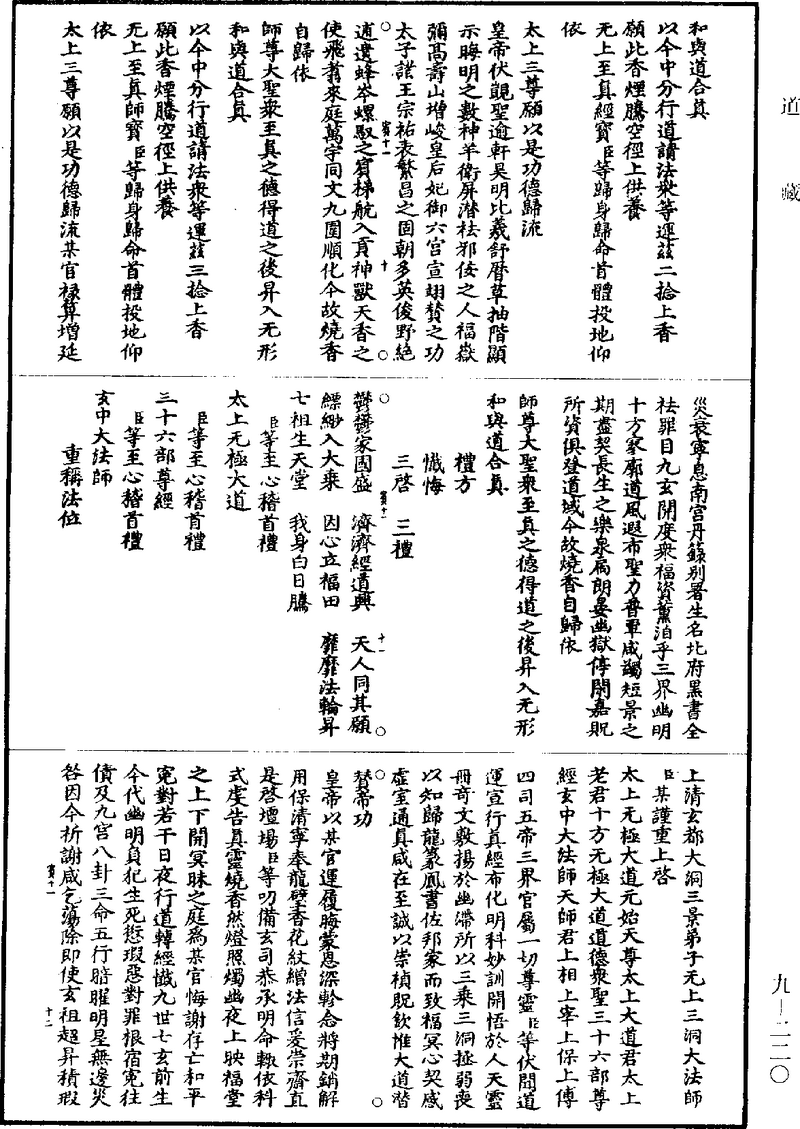 道藏
和與道合真
以今中分行道請法衆等運茲二捻上香
願此香煙騰空徑上供養
无上至真經寶臣等歸身歸命首體投地仰
依
太上三尊願以是功德歸流
皇帝伏覬聖逾軒昊明比羲舒曆草抽階顯
示晦明之數神羊衛屏潛祛邪佞之人福嶽
彌高壽山增峻皇后妃御六宮宣翊贊之功
太子諸王宗祐表繁昌之固朝多英俊野絕
逋遺蜂岑螺馭之賓梯航入貢神獸天香之
使飛翥來庭萬宇同文九圍順化今故燒香
自歸依
師尊大聖衆至真之德得道之後昇入无形
和與道合真
以今中分行道請法衆等運茲三捻上香
願此香煙騰空徑上供養
无上至真師寶臣等歸身歸命首體投地仰
依
太上三尊願以是功德歸流某官祿算增延
災衰寧息南宮丹籙別署生名北府黑書全
祛罪目九玄開度衆福資薰洎乎三界幽明
十方寥廓道風遐布聖力普覃咸蠲短景之
期盡契長生之樂泉扃朗晏幽獄停閑嘉貺
所資俱登道域今故燒香自歸依
師尊大聖衆至真之德得道之後昇入无形
和與道合真
禮方
懺悔
三啓 三禮
鬱鬱家國盛 濟濟經道興 天人同其願
縹緲入大乘 因心立福田 靡靡法輪昇
七祖生天堂 我身白日騰
臣等至心稽首禮
太上无極大道
臣等至心稽首禮
三十六部尊經
臣等至心稽首禮
玄中大法師
重稱法位
上清玄都大洞三景弟子无上三洞大法師
臣某謹重上啓
太上无極大道元始天尊太上大道君太上
老君十方无極大道道德衆聖三十六部尊
經玄中大法師天師君上相上宰上保上傅
四司五帝三界官屬一切尊靈臣等伏聞道
運宣行真經布化明科妙訓開悟於人天靈
冊奇文敷揚於幽滯所以三乘三洞拯弱喪
以知歸龍篆鳳書佐邦家而致福冥心契感
虛室通真咸在至誠以崇禎貺欽惟大道潛
贊帝功
皇帝以某官運履晦蒙恩深軫念將期銷解
用保清寧奉龍璧香花紋繒法信爰崇齋直
是啓壇場臣等叨備玄司恭承明命輙依科
式虔告真靈燒香然燈照燭幽夜上映福堂
之上下開冥昧之庭爲某官悔謝存亡和平
冤對若干日夜行道轉經懺九世七玄前生
今代幽明負犯生死愆瑕惡對罪根宿冤往
債及九宮八卦三命五行暗曜明星無邊災
咎因今祈謝咸乞蕩除即使玄祖超昇積瑕
九-二二〇